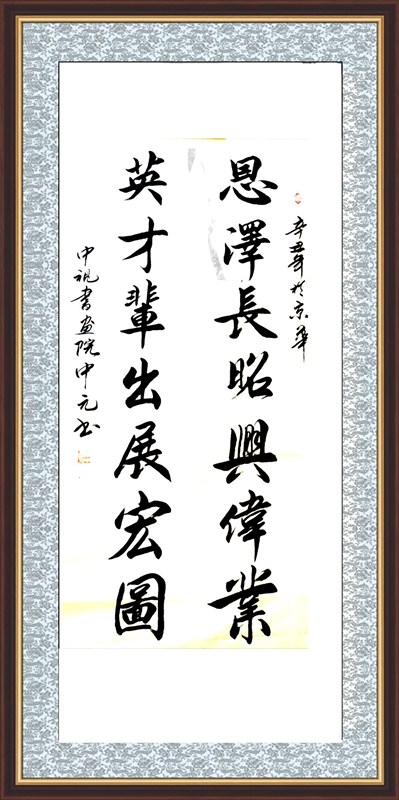 辛丑年於京華
恩澤長昭興偉業
英才輩出展宏圖
中視書畫院中元书